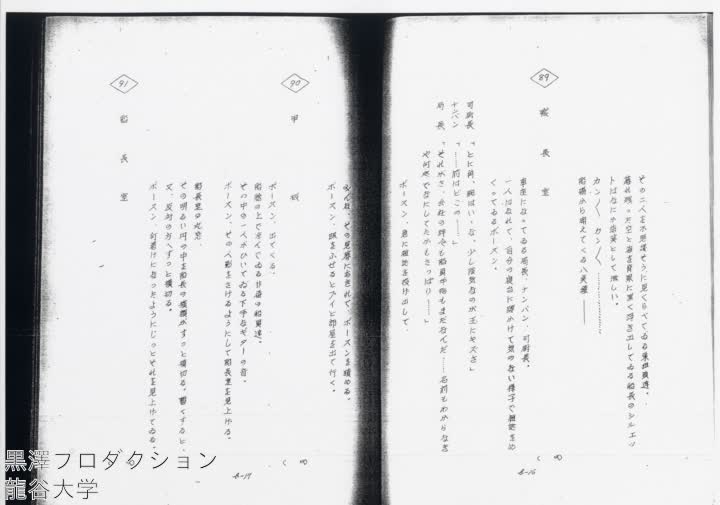 その二人を不思議そうに見くらべてゐる乗組員達。
暮れ残った空と海を背景に黒く浮き出してゐる船長のシルエッ
トはなにか苗実として淋しい。
カン／＼　カン／＼…………
船橋から聞えてくる八点鐘――
89
職長室
車座になってゐる局長、ナンバン、司厨長。
一人はなれて、自分の寝台に腰かけて気のない様子で細紐を
くってゐるボースン。
司厨長「とに角、腕はいゝな、少し陰気なのが玉にキズさ」
ナンバン「……前はどこの……」
局長「それがさ、会社の辞令も船員手帖もまだなんだ……名前もわからなき
や何処でなにしてたかもさっぱり……」
ボースン、急に細紐を投げ出して、
(四)
B-16
みんな、その見幕にあきれて、ボースンを積める。
ボースン、眼をふせるとプイと部屋を出て行く。
90
甲板
ボースン、出てくる。
船艙の上で涼んでゐる非番の船員達。
その中の一人がひいてゐる下手なギターの音。
ボースン、その人影をさけるようにして船長室を見上げる。
91
船長室
船長室の丸窓。
その明るい円の中を船長の横顔がすっと横切る。暫くすると、
又、反対の方へすっと横切る。
ボースン、釘着けになったようにじっとそれを見上げてゐる。
(四)
B-17
黒澤プロダクション
龍谷大学